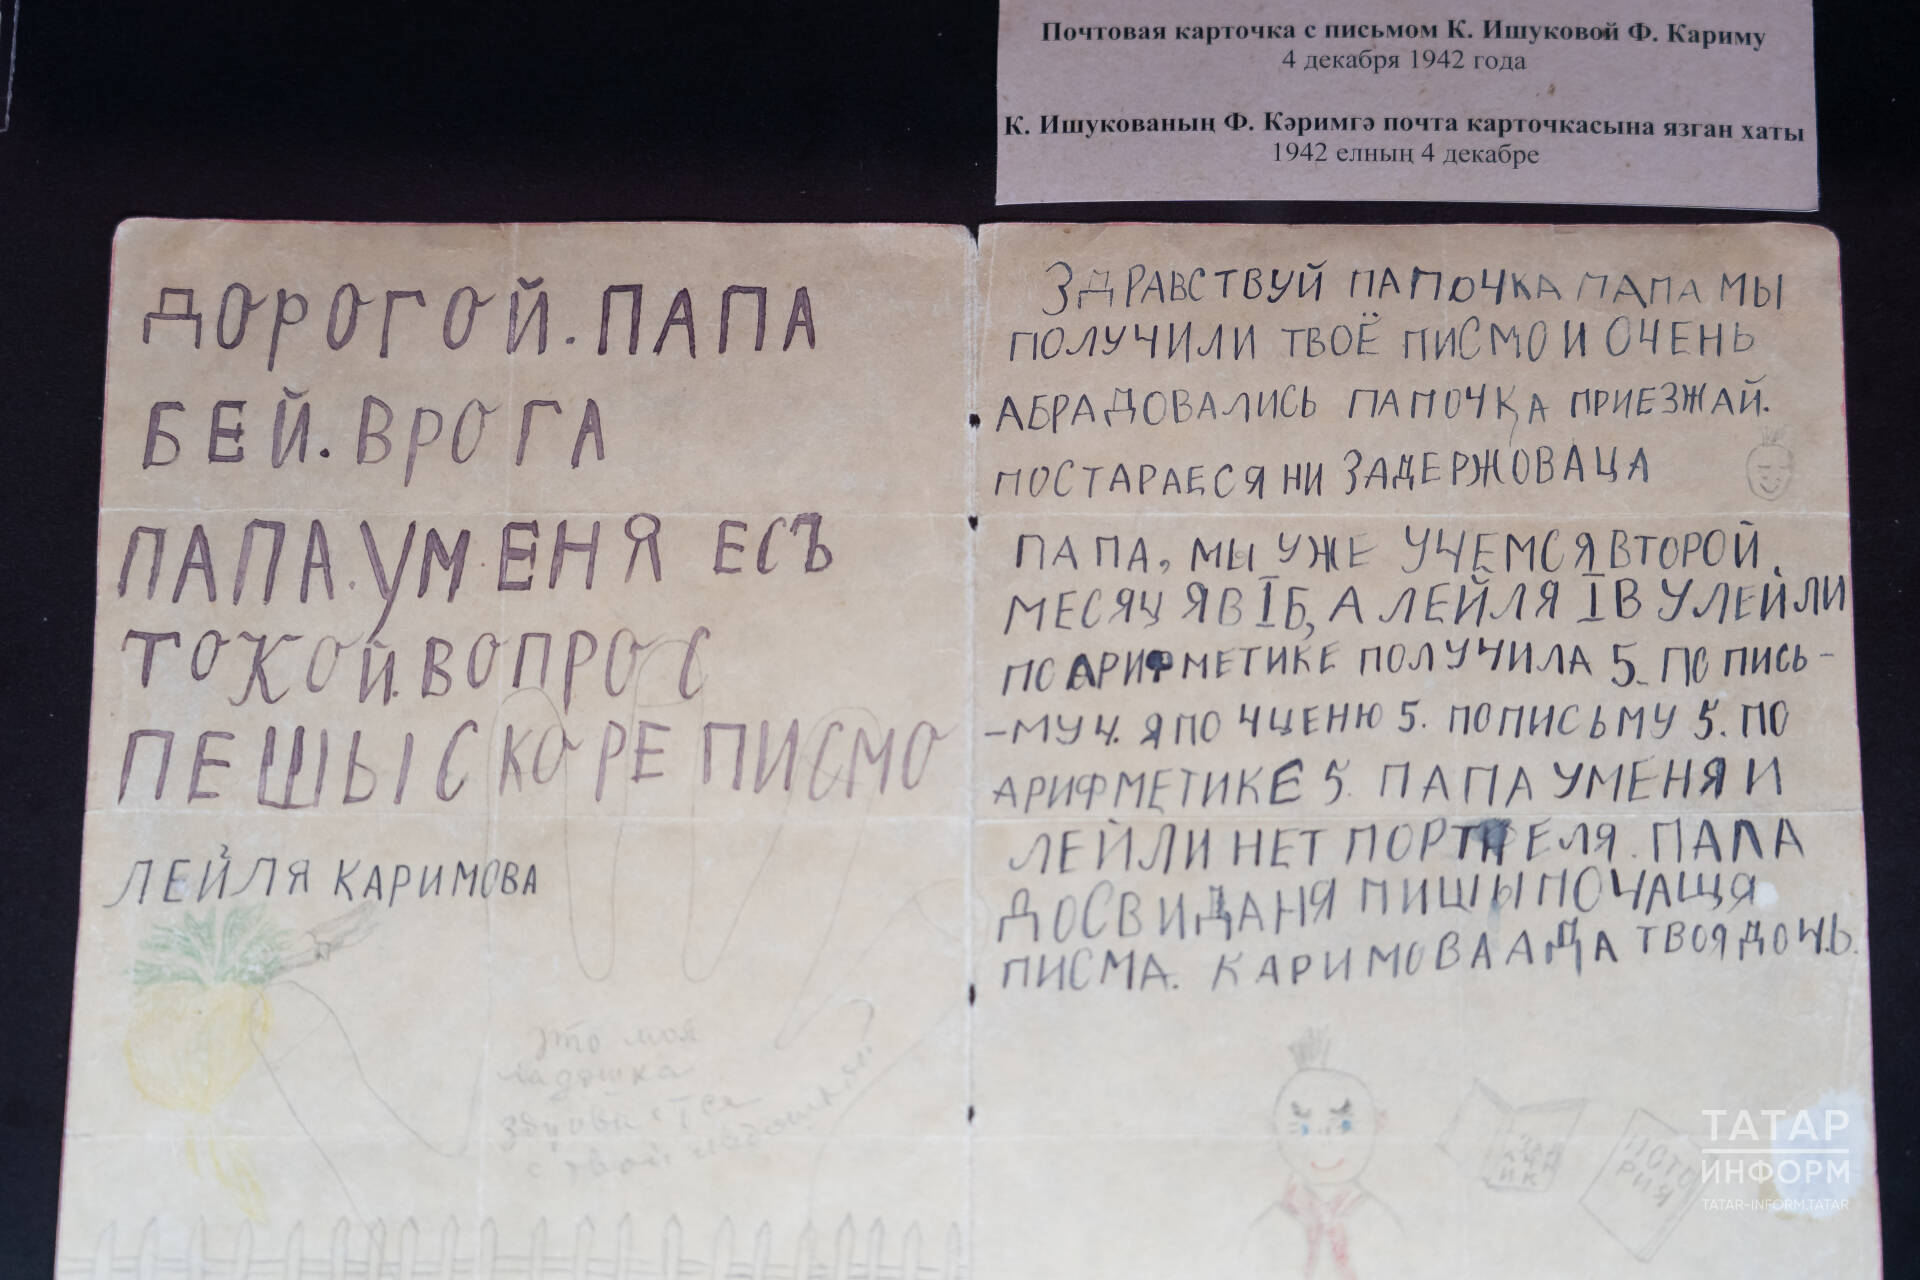 Почтовая карточка с письмом К. Ишуковой Ф. Кариму
4 декабря 1942 года
К. Ишукованың Ф. Кәримгә почта карточкасына язган хаты
1942 елның 4 декабре
ДОРОГОЙ. ПАПА
БЕЙ. ВРОГА
ПАПА. У М. ЕНЯ ЕСЪ
ТОКОЙ. ВОПРОС
ПЕШЫ СКОРЕ ПИСМО
ЛЕЙЛЯ КАРИМОВА
Это моя
ладошка
с твоей
ЗДРАВСТВУЙ ПАПОЧКА ПАПА МЫ
ПОЛУЧИЛИ ТВОЁ ПИСМО И ОЧЕНЬ
АБРАДОВАЛИСЬ ПАПОЧКА ПРИЕЗЖАЙ.
ПОСТАРАЕСЯ НИ ЗАДЕРЖОВАЦА
ПАПА, МЫ УЖЕ УЧЕМСЯ ВТОРОЙ
МЕСЯЦ Я В I Б, А ЛЕЙЛЯ I В У ЛЕЙЛИ
ПО АРИФМЕТИКЕ ПОЛУЧИЛА 5. ПО ПИСЬ-
-МУ 4. Я ПО ЧЦЕНЮ 5. ПО ПИСЬМУ 5. ПО
АРИФМЕТИКЕ 5. ПАПА У МЕНЯ И
ЛЕЙЛИ НЕТ ПОРТФЕЛЯ. ПАПА
ДОСВИДАНЯ ПИШЫ ПОЧАЩЯ
ПИСМА. КАРИМОВА АДА ТВОЯ ДОЧЬ.
ТАТАР
ИНФОРМ
TATAR-INFORM.TATAR